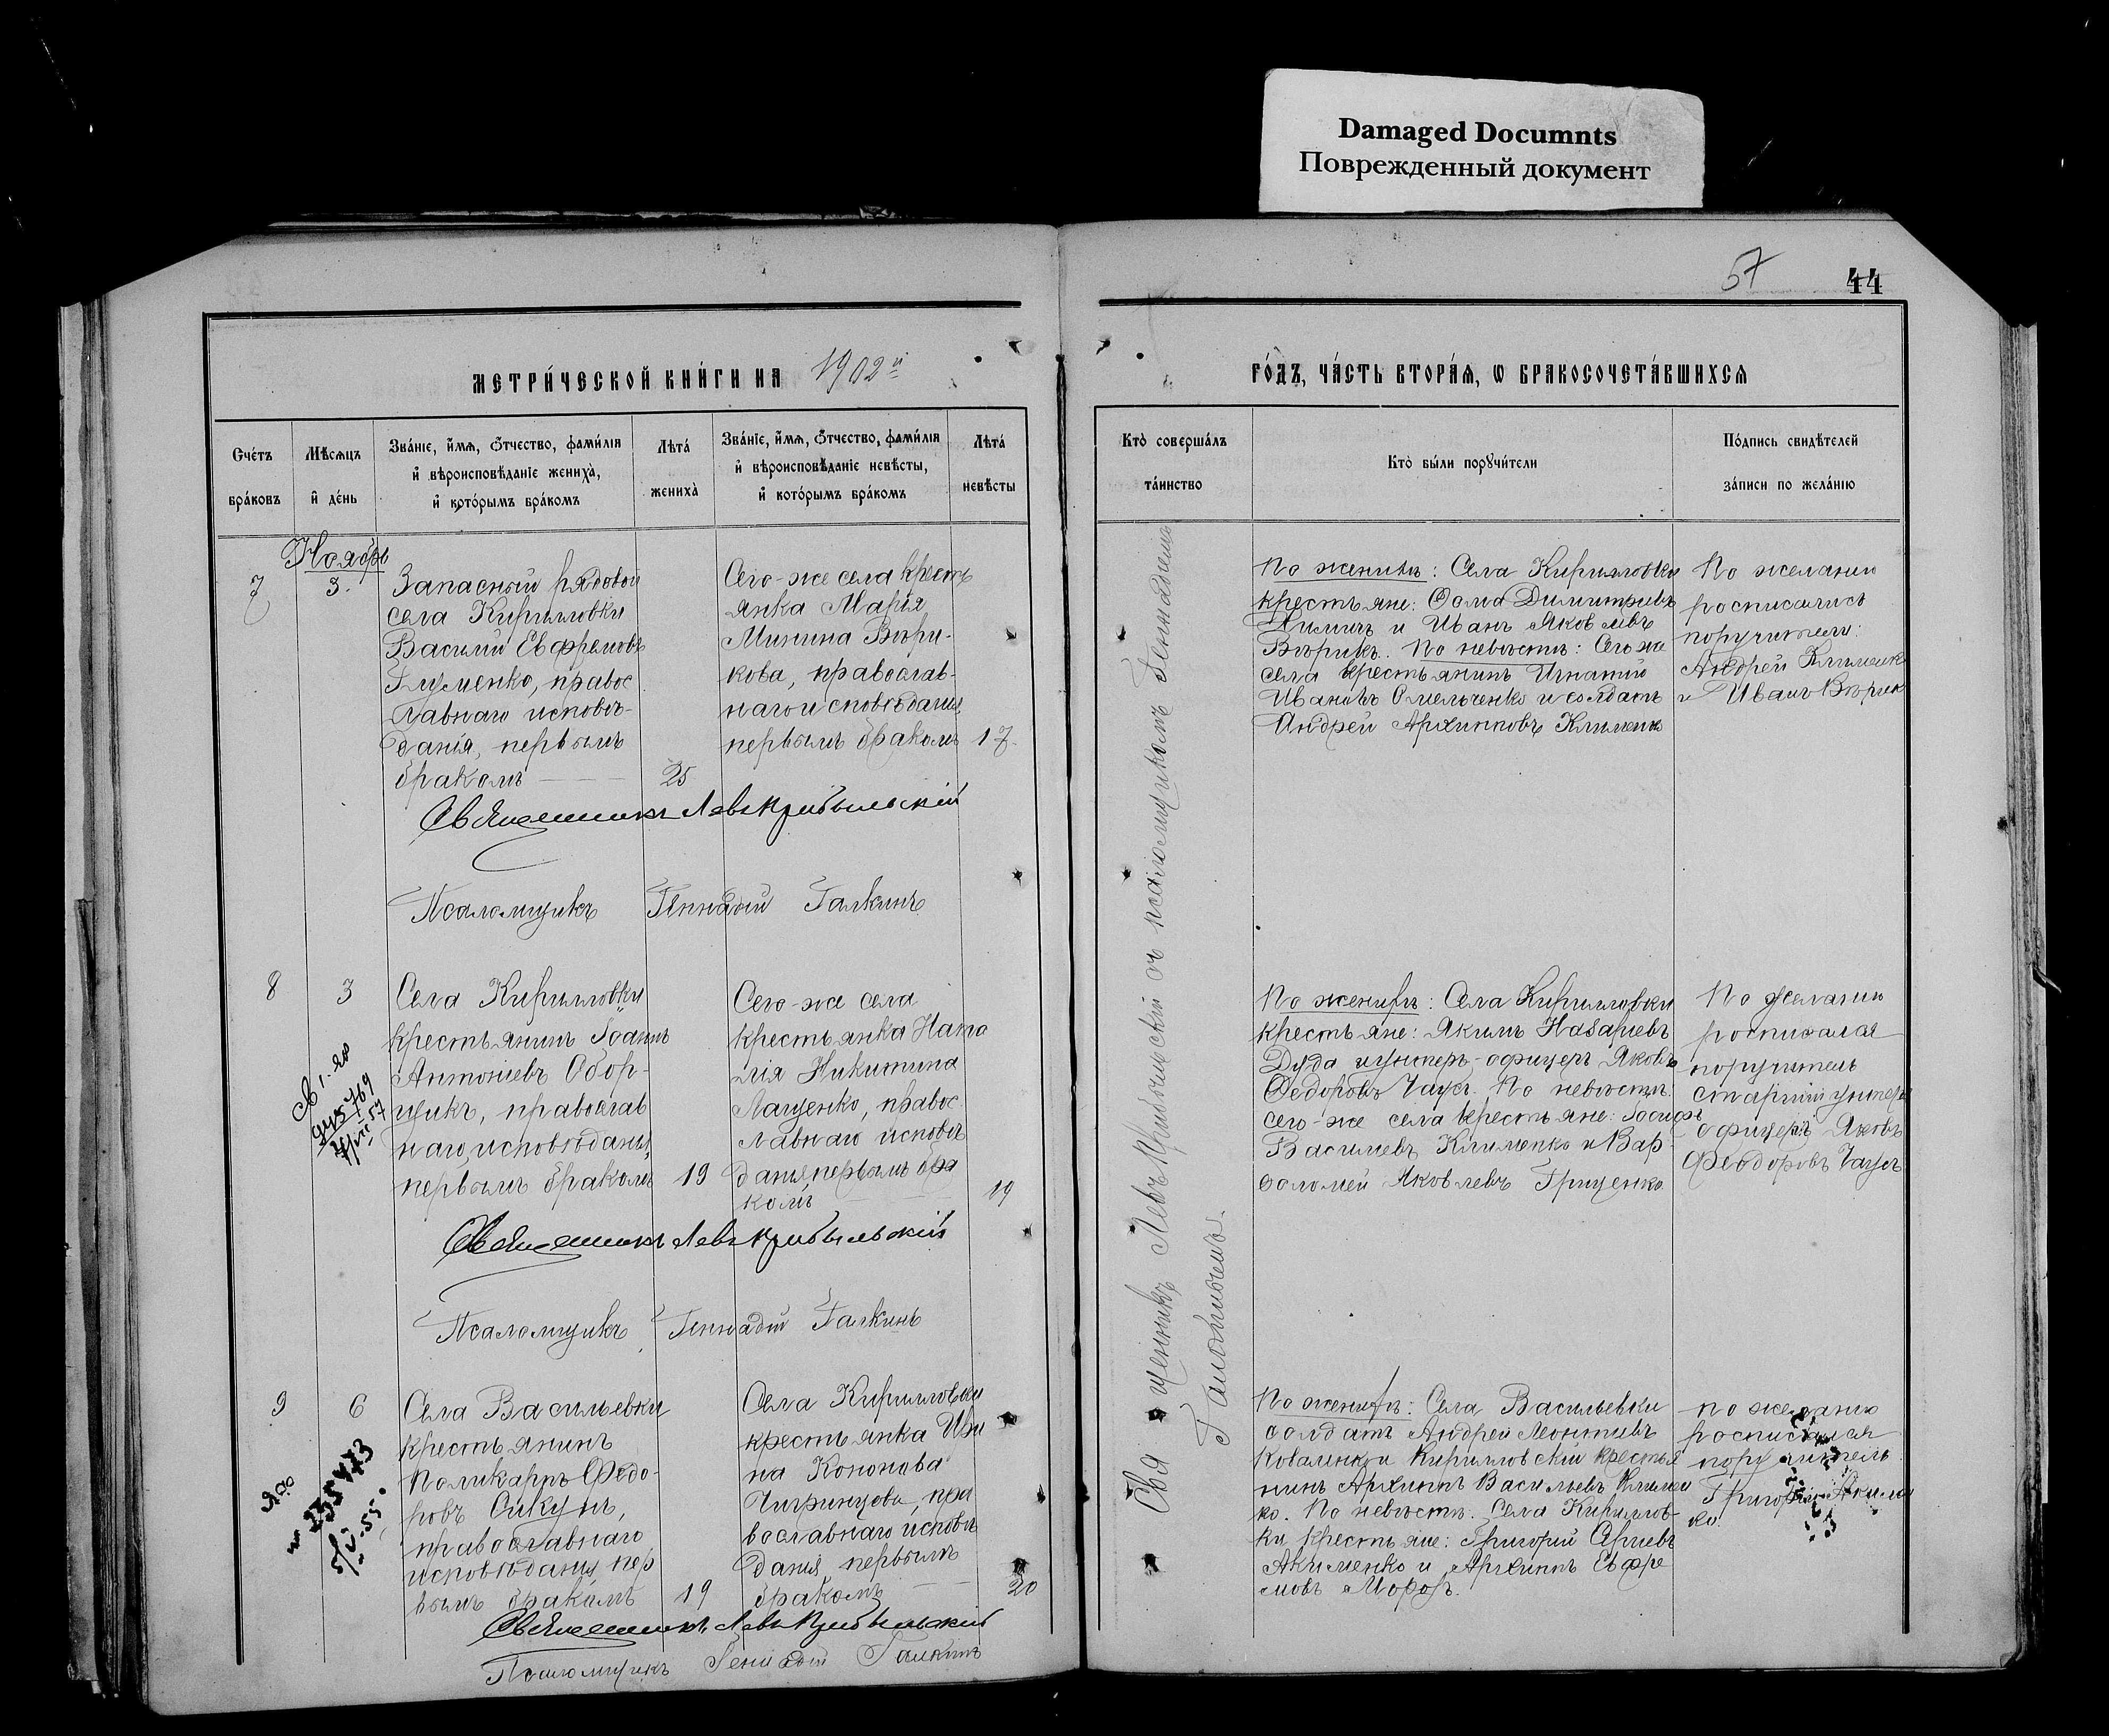 Damaged Documnts
Поврежденный документ
57 44
МЕТРИ́ЧЕСКОЙ КНИ́ГИ НА 1902й
ГО́ДЪ, ЧА́СТЬ ВТОРА́Я, Ѡ БРАКОСОЧЕТА́ВШИХСЯ
Сче́тъ
бра́ковъ
Мѣ́сяцъ
и҆ де́нь
Зва́нїе, и҆́мя, ѻ҆́тчество, фами́лїя
и҆ вѣроисповѣ́данїе жениха̀,
и҆ кото́рымъ бра́комъ
Лѣта̀
жениха̀
Зва́нїе, и҆́мя, ѻ҆́тчество, фами́лїя
и҆ вѣроисповѣ́данїе невѣ́сты,
и҆ кото́рымъ бра́комъ
Лѣта̀
невѣ́сты
Кто̀ соверша́лъ
та́инство
Кто̀ бы́ли порꙋчи́тели
По́дпись свидѣ́телей
за́писи по жела́нїю
Ноябрь
7
3.
Запасный рядовой
села Кирилловки
Василий Евфремовъ
Глуменко, правос
лавнаго исповѣ-
данія, первымъ
бракомъ
25
Сего-же села кресть
янка Марія
Минина Вѣри-
кова, православ-
наго исповѣданія,
первымъ бракомъ
17.
Священникъ Левъ Прибыльскій
Псаломщикъ Геннадій Галкинъ
По женихѣ: Села Кирилловки
крестьяне: Ѳома Димитріевъ
и Иванъ Яковлевъ
Вѣрикъ. По невѣстѣ: Сего же
села крестьянинъ Игнатій
Ивановъ Омельченко и солдатъ
Андрей Архиповъ Клименко
По желанію
росписались
поручители:
Андрей Клименко
и Иванъ Вѣрик
8
3
Села Кирилловки
крестьянинъ Іоаннъ
Антоніевъ Обор-
щикъ, православ
наго исповѣданія,
первымъ бракомъ
19
Сего-же села
крестьянка Ната
лія Никитина
Лащенко, правос
лавнаго исповѣ
данія первымъ бра
комъ
19
Священникъ Левъ Прибыльскій
Псаломщикъ Геннадій Галкинъ
По женихѣ: Села Кирилловки
крестьяне: Якимъ Назаріевъ
Дуда и унтеръ-офицеръ Яковъ
Федоровъ Чаусъ. По невѣстѣ:
сего-же села крестьяне: Іосифъ
Василіевъ Клименко и Вар-
ѳоломей Яковлевъ Гриценко
По желанію
росписался
поручитель
старшій унтеръ
офицеръ Яковъ
Феодоровъ Чаусъ
9
6
Села Васильевки
крестьянинъ
Поликарпъ Федо-
ровъ Сикунъ,
православнаго
исповѣданія, пер
вымъ бракомъ
19
Села Кирилловки
крестьянка Ири
на Кононова
Чигринцева, пра
вославнаго исповѣ
данія первымъ
бракомъ
20
Священникъ Левъ Прибыльскій
Псаломщикъ Генадій Галкинъ
По женихѣ: Села Васильевки
солдатъ Андрей Леонтіевъ
Коваленко и Кирилловскій крестья
нинъ Архипъ Васильевъ Климен
ко. По невѣстѣ: Села Кириллов-
ки крестьяне: Григорій
Акименко и Архипъ Евфре
мовъ Морозъ.
по желанію
росписался
поручитель
Григорій Акимен
ко.
Священникъ Левъ Прибыльскій съ псаломщикомъ Геннадіемъ